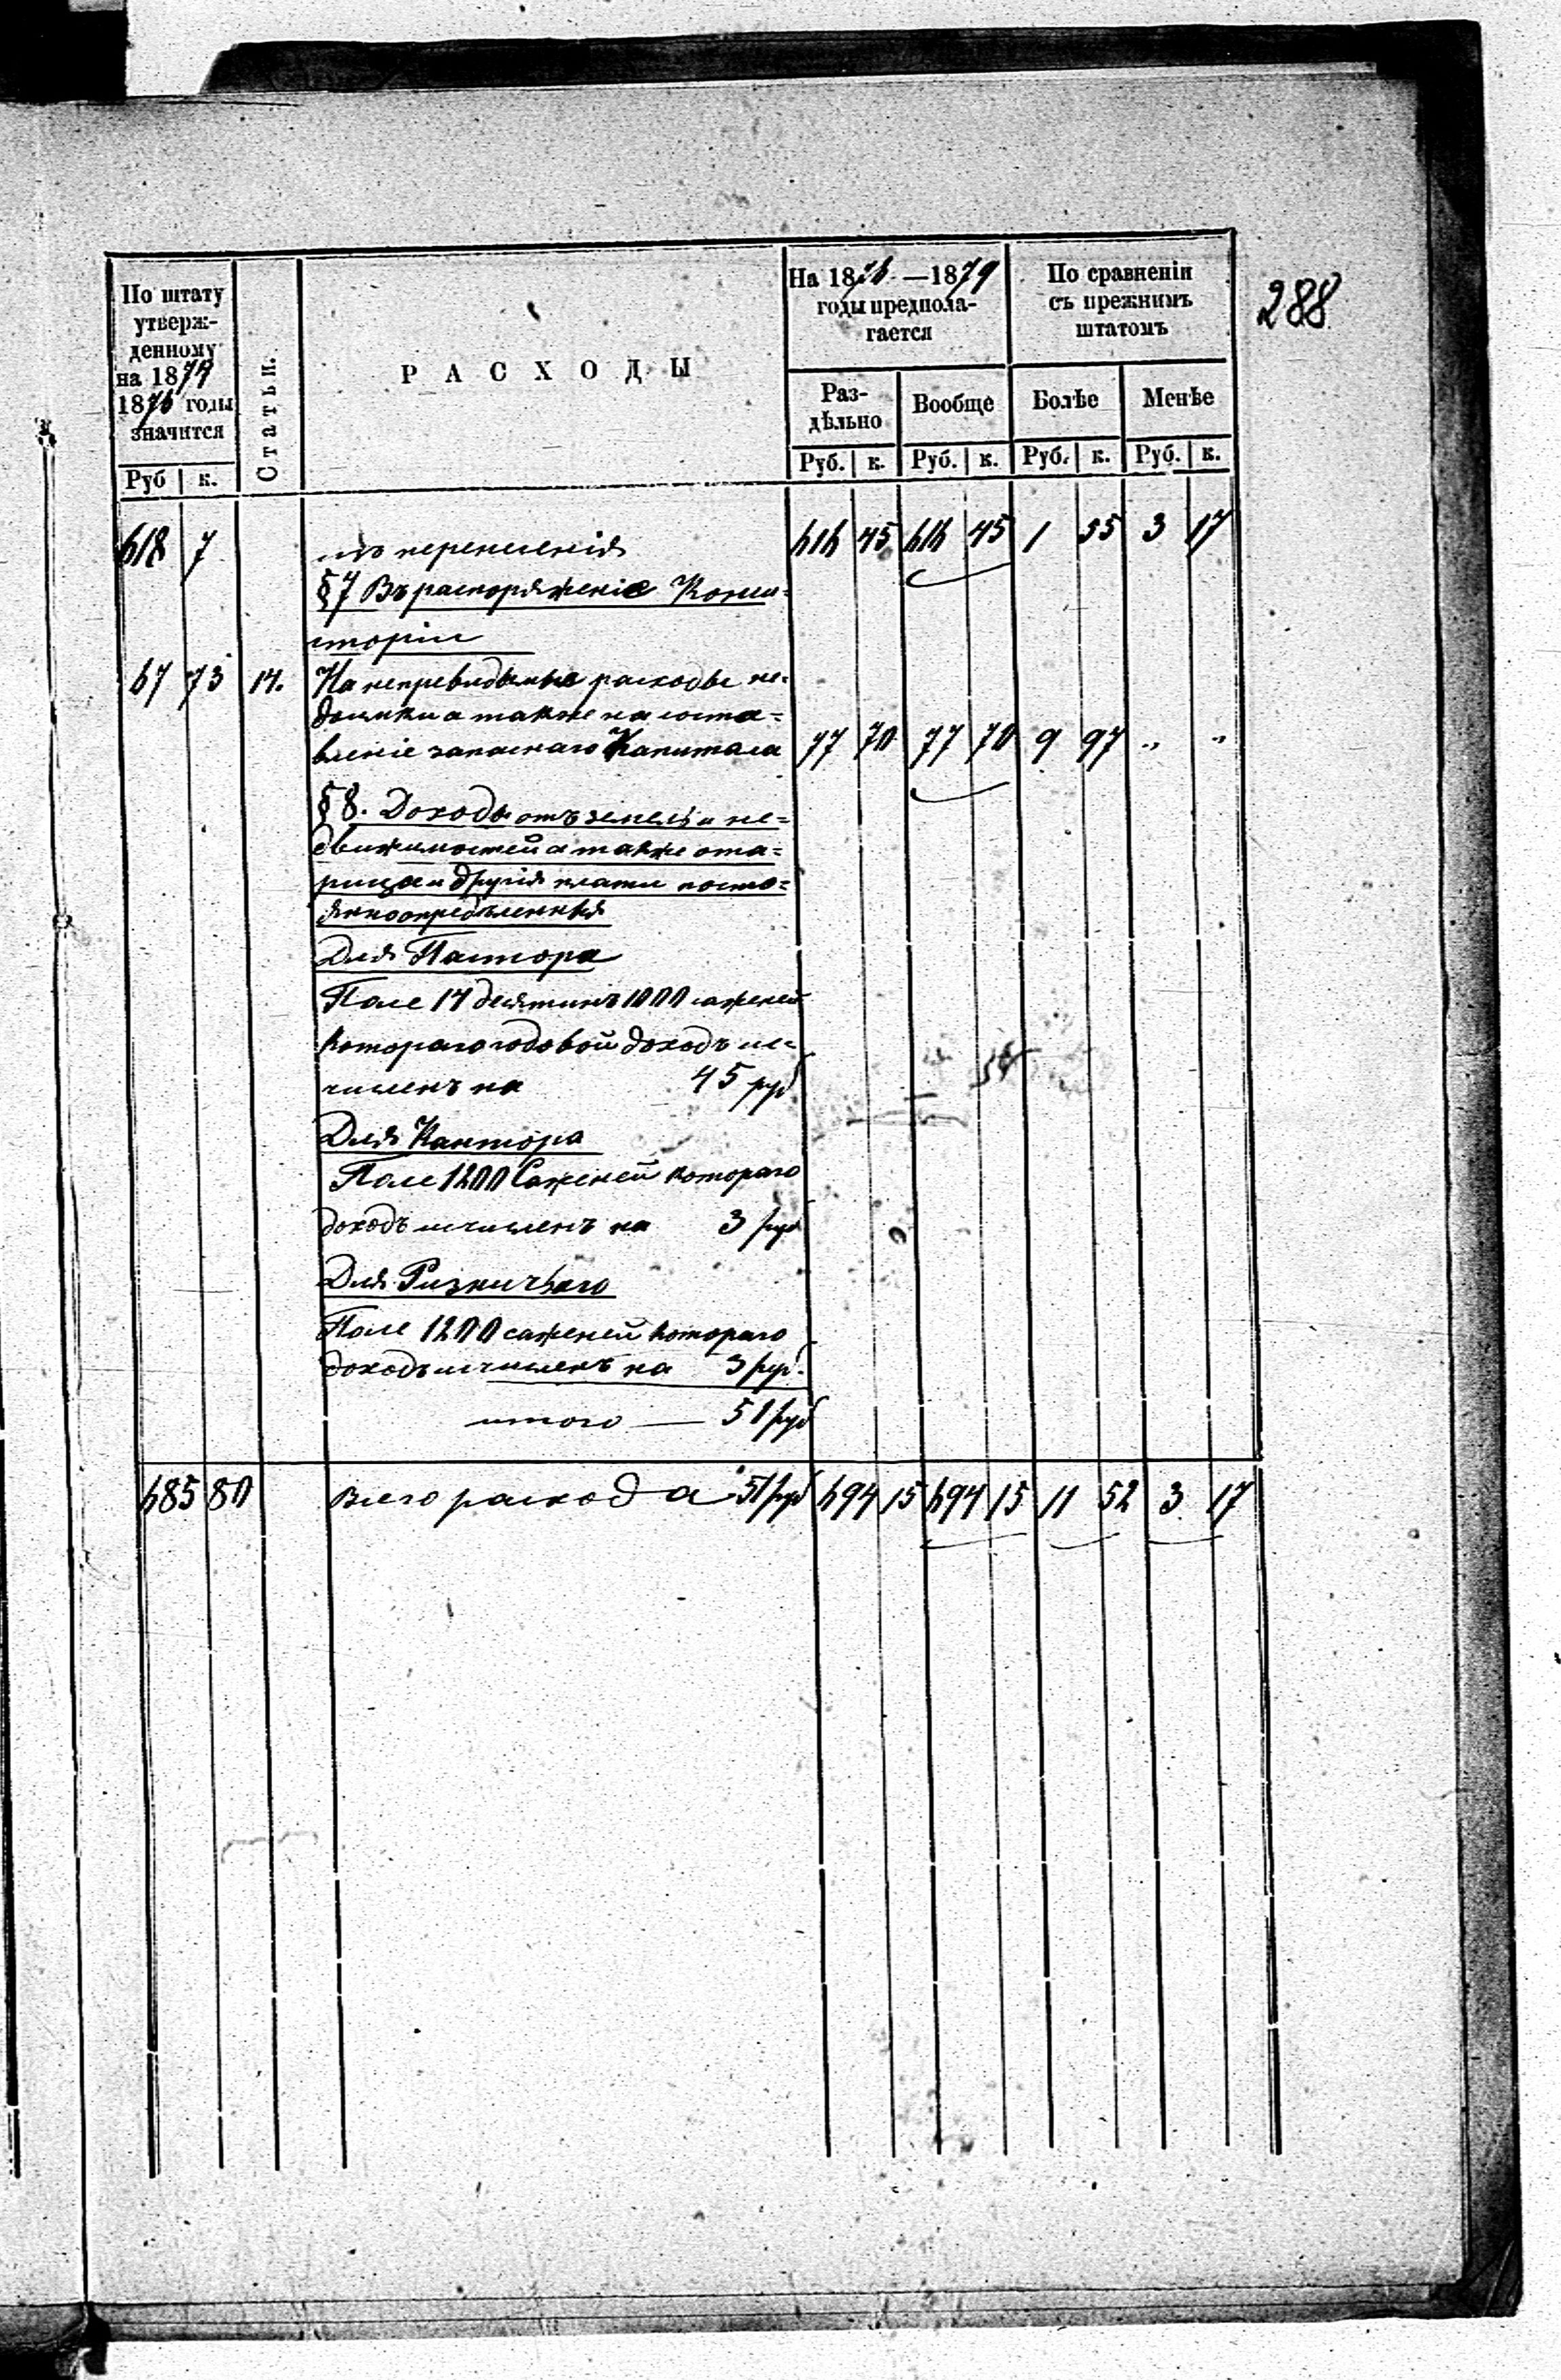 288
По штату утверж-денному на 1874 1876 годы значится
Статьи.
РАСХОДЫ
На 1876—1879 годы предпола-гается
По сравненіи съ прежнимъ штатомъ
Раз-дѣльно
Вообще
Болѣе
Менѣе
Руб к. Руб. к. Руб. к. Руб. к. Руб. к.
618 7 перенесенія 616 45 616 45 1 55 3 17
§ 7 Въ распоряженіе Конси-
сторіи
67 73 17. На непредвидимые расходы не-
доимки а также на соста-
вленіе запаснаго Капитала 77 70 77 70 9 97 „ „
§ 8. Доходы отъ земель и не=
движимостей а также ота=
рица и другія платы посто=
янно опредѣленныя
Для Пастора
Поле 17 десятинъ 1000 саженей
котораго годовой доходъ ис-
численъ на 45 руб
Для Кантора
Поле 1200 Саженей котораго
доходъ исчисленъ на 3 руб
Для Ризничьяго
Поле 1200 саженей котораго
доходъ исчисленъ на 3 руб.
итого — 51 руб
685 80 Всего расхода 51 руб 694 15 694 15 11 52 3 17